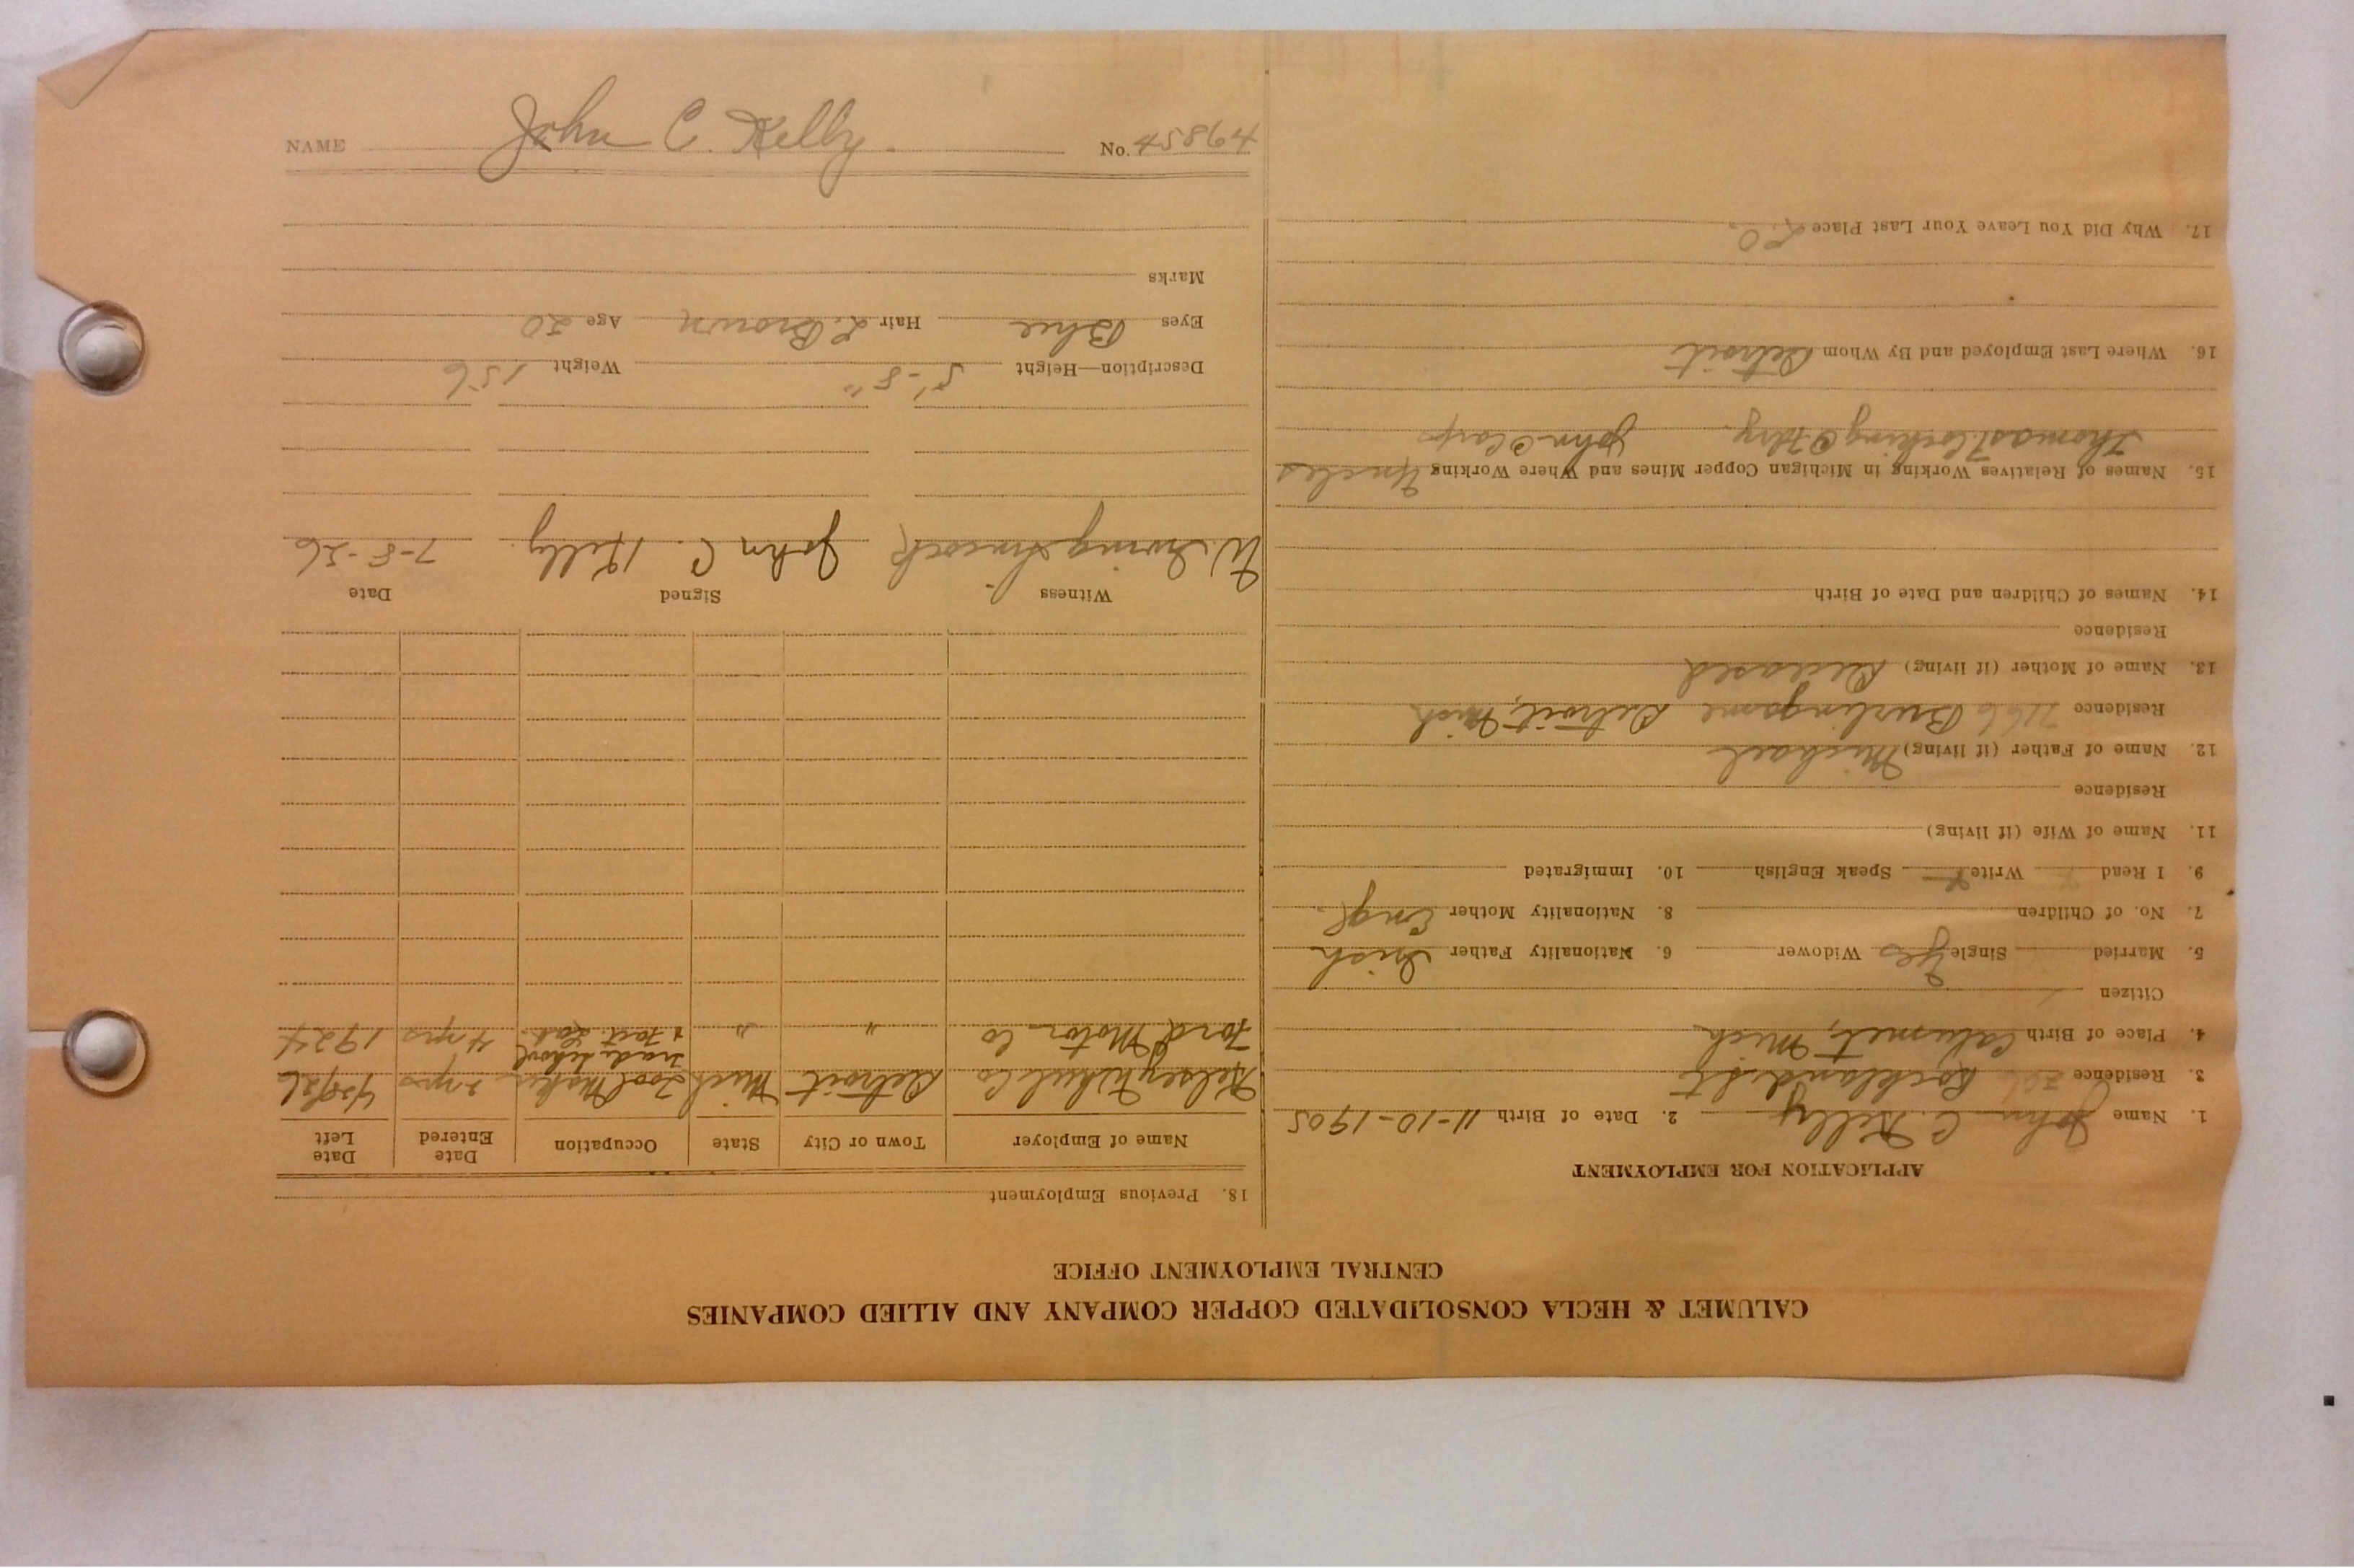 CALUMET & HECLA CONSOLIDATED COPPER COMPANY AND ALLIED COMPANIES
CENTRAL EMPLOYMENT OFFICE
APPLICATION FOR EMPLOYMENT
1. Name John C. Kelly 2. Date of Birth 11-10-1905
3. Residence Rockland St
4. Place of Birth Calumet, Mich
Citizen
5. Married Single Yes Widower 6. Nationality Father Irish
7. No. of Children 8. Nationality Mother Engl.
9. I Read Write Speak English 10. Immigrated
11. Name of Wife (if living)
Residence
12. Name of Father (if living) Michael
Residence 7166 Burlingame Detroit, Mich
13. Name of Mother (if living) Deceased
Residence
14. Names of Children and Date of Birth
15. Names of Relatives Working in Michigan Copper Mines and Where Working Uncles
Thomas Fdry. John
16. Where Last Employed and By Whom Detroit
17. Why Did You Leave Your Last Place L.O.
18. Previous Employment
Name of Employer Town or City State Occupation Date Entered Date Left
Kelsey Wheel Co Detroit Mich Tool Maker 2 yrs 4/28/26
Ford Motor Co " " Trade School & Fact. Lab. 4 yrs 1924
Witness Signed Date
W. Irving John C. Kelly. 7-8-26
Description—Height 5'-8" Weight 156
Eyes Blue Hair L. Brown Age 20
Marks
NAME John C. Kelly. No. 45894